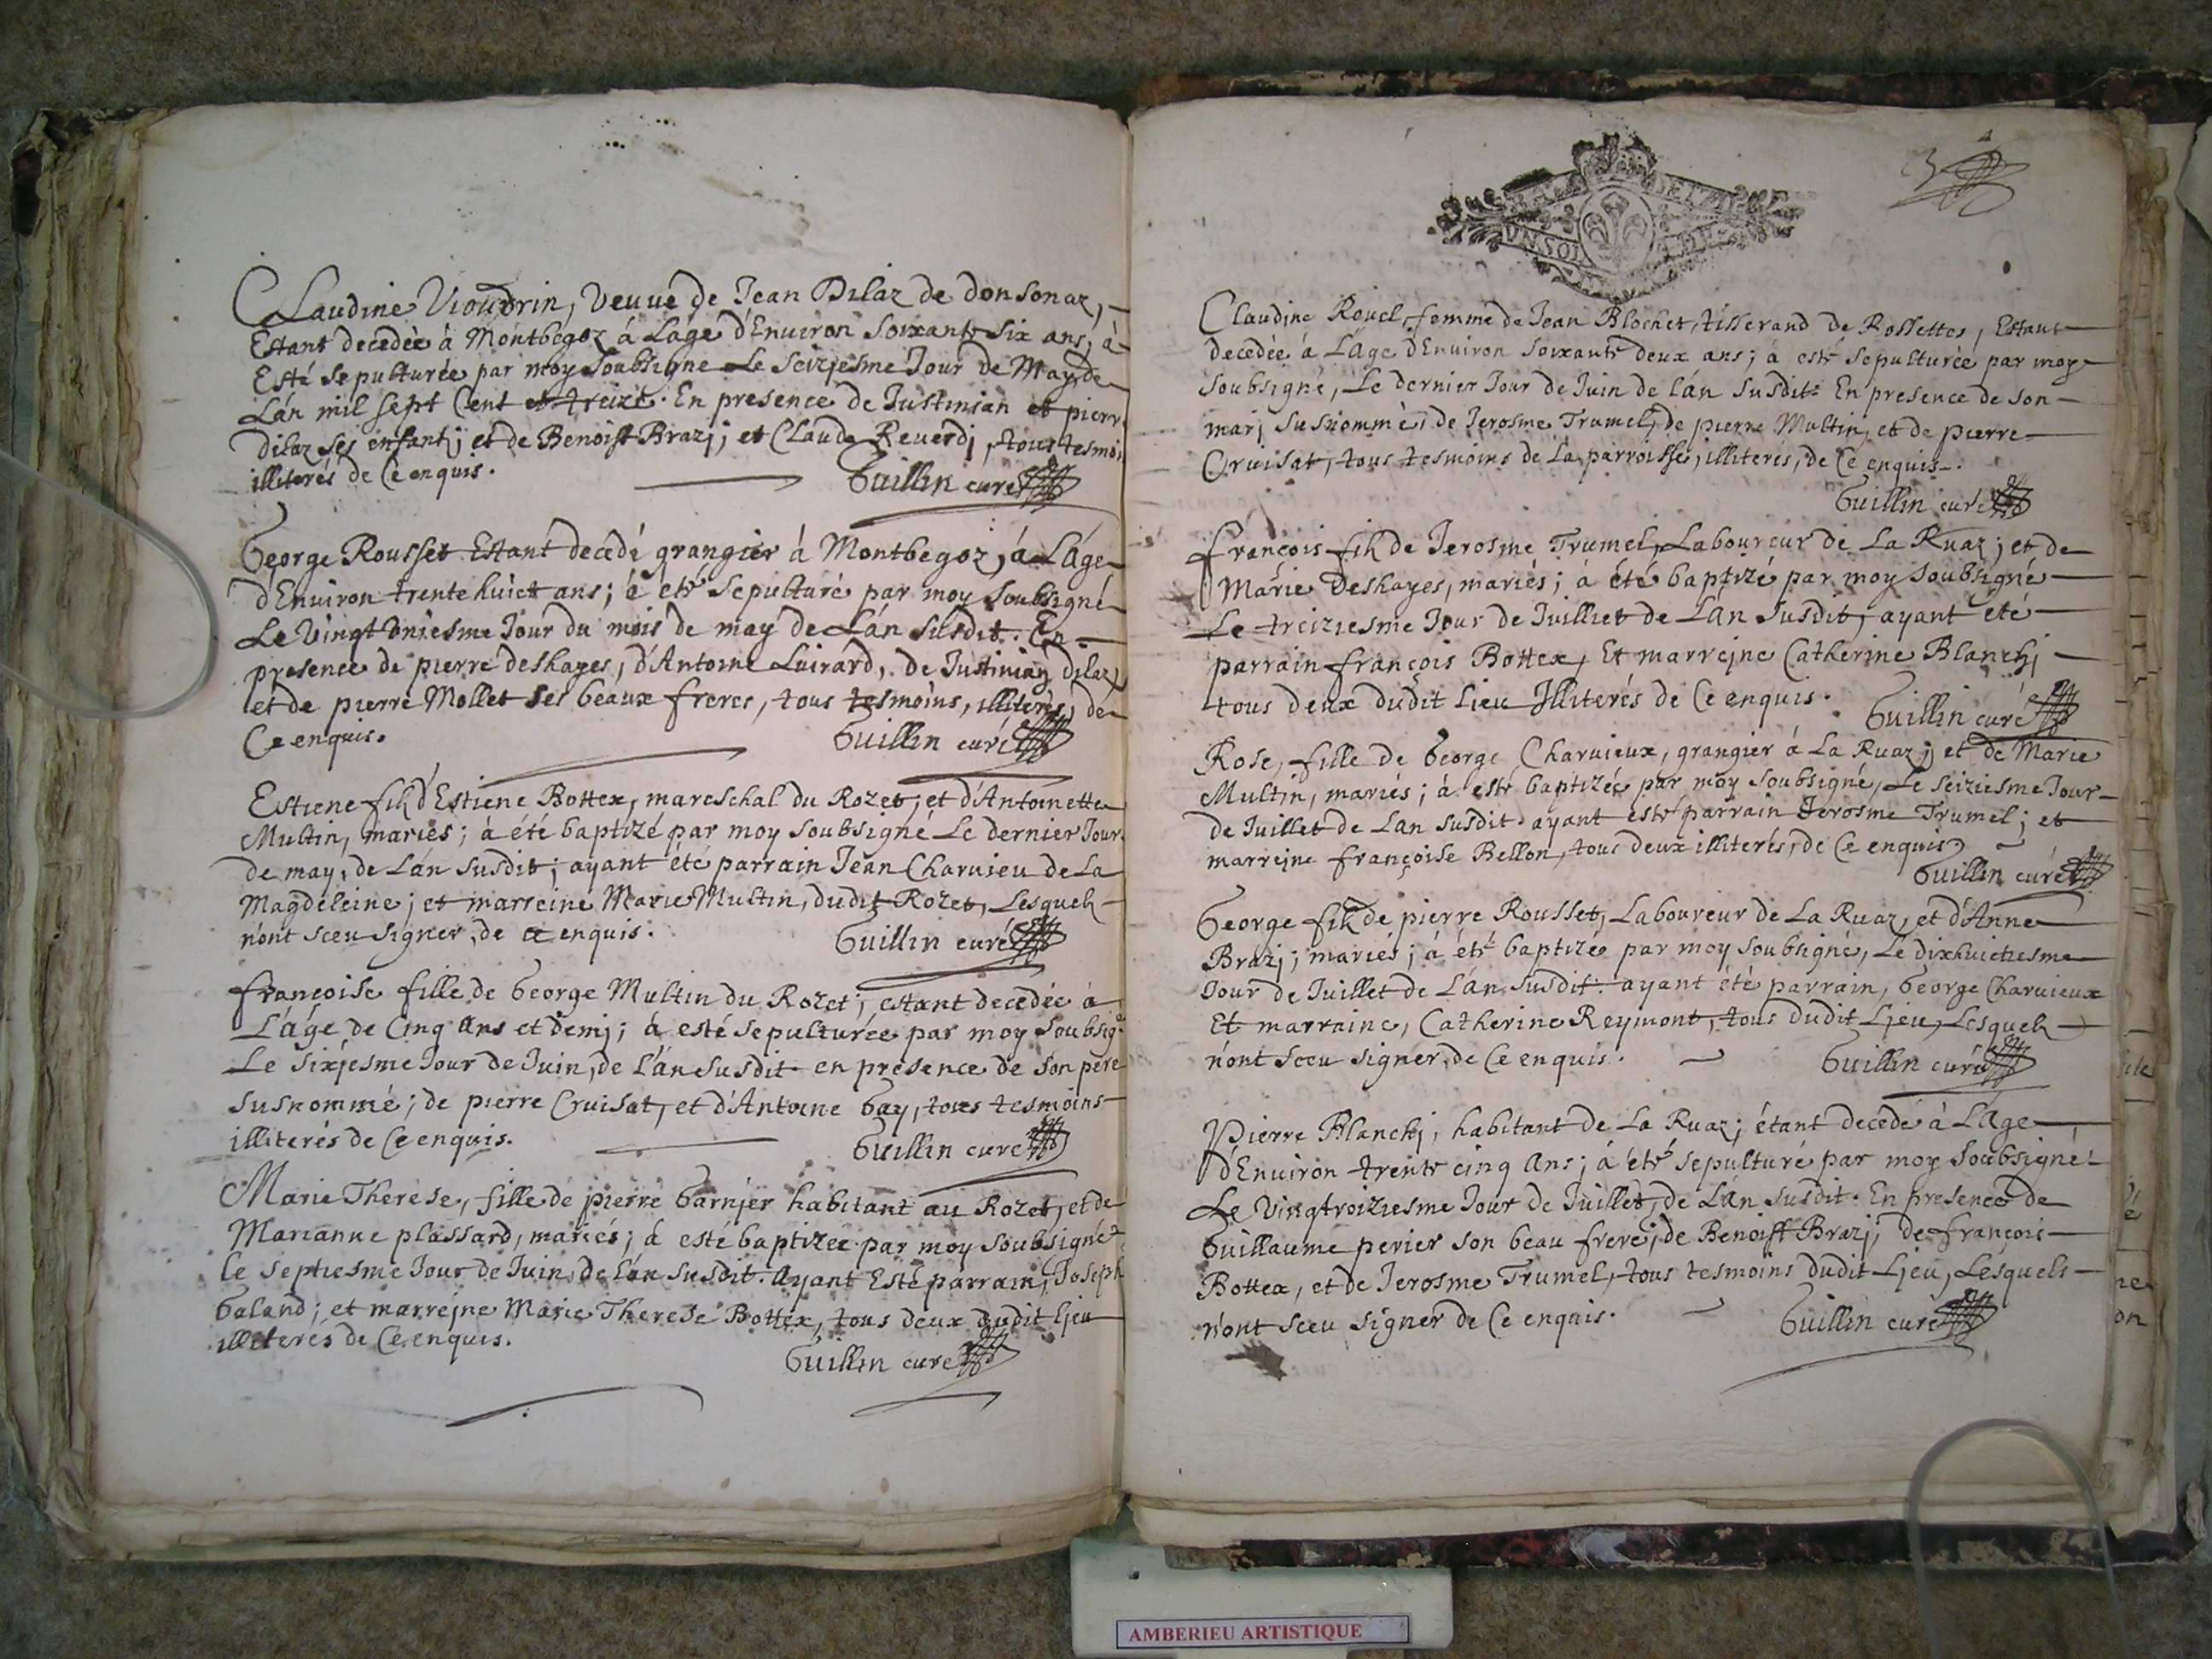 Claudine Vioudrin, veuve de Jean Dilaz de donsonaz,
Estant decedée à Montbegoz à Lage d'Environ soixante six ans, à
Esté sepulturée par moy soubsigné Le seiziesme Jour de May de
Lán mil sept Cent et treize. En presence de Justinian et pierre
dilaz ses enfants; et de Benoist Brazj; et Claude Reverdj, tous tesmoi
illiterés de Ce enquis.
Guillin curé
George Rousset Estant decedé grangier à Montbegoz, á Láge
d'Environ trente huict ans; à eté sepulturé par moy soubsigné
Le Vingt Uniesme Jour du mois de may de Lán susdit. En
presence de pierre deshayes, d'Antoine Luirard, de Justinian dilaz
et de pierre Mollet ses beaux freres, tous tesmoins, illiterés, de
Ce enquis.
Guillin curé
Estiene fils d'Estiene Bottex, mareschal du Rozet; et d'Antoinette
Multin, mariés; à été baptizé par moy soubsigné Le dernier Jour
de may, de Lán susdit; ayant été parrain Jean Charvieu de La
Magdeleine; et marreine Marie Multin, dudit Rozet, Lesquels
n'ont sceu signer, de ce enquis.
Guillin curé
françoise fille de George Multin du Rozet; estant decedée à
Láge de Cinq ans et demj; à esté sepulturée par moy soubsig.
Le sixjesme Jour de Juin, de Lán susdit. en presence de son pere
susnommé; de pierre Cruisat, et d'Antoine Gay, tous tesmoins
illiterés de Ce enquis.
Guillin curé
Marie Therese, fille de pierre Garnjer habitant au Rozet, et de
Marianne plassard, mariés; à esté baptizée par moy soubsigné
le septiesme Jour de Juin, de Lán susdit. ayant Esté parrain, Joseph
Galand; et marrejne Marie Therese Bottex, tous deux dudit ljeu
illiterés de Ce enquis.
Guillin curé
3
UN SOL
Claudine Rouel, femme de Jean Blochet, tisserand de Rossettes, Estant
decedée à Láge d'Environ soixante deux ans; à esté sepulturée par moy
soubsigné, Le dernier Jour de Juin de Lán susdit. En presence de son
marj susnommé; de Jerosme Trumel, de pierre Multin, et de pierre
Cruisat, tous tesmoins de La parroisse, illiterés, de Ce enquis.
Guillin curé
françois fils de Jerosme Trumel, Laboureur de La Ruaz; et de
Marie Deshayes, mariés; à été baptizé par moy soubsigné
Le treiziesme Jour de Juilliet de Lán susdit, ayant été
parrain françois Bottex, Et marrejne Catherine Blanchj
tous deux dudit Lieu Illiterés de Ce enquis.
Guillin curé
Rose, fille de George Charvieux, grangier à La Ruaz; et de Marie
Multin, mariés; à esté baptizée par moy soubsigné, Le seiziesme Jour
de Juillet de Lan susdit. ayant esté parrain Jerosme Trumel; et
marrejne françoise Bellon, tous deux illiterés, de Ce enquis
Guillin curé
George fils de pierre Rousset, Laboureur de La Ruaz, et d'Anne
Brazj; mariés; à été baptizée par moy soubsigné, Le dixhuictiesme
Jour de Juillet de Lán susdit. ayant été parrain, George Charvieux
Et marraine, Catherine Reymont, tous dudit Ljeu, Lesquels
n'ont sceu signer, de Ce enquis.
Guillin curé
Pierre Blanchj, habitant de La Ruaz; étant decedé à Láge
d'Environ trente cinq ans; à été sepulturé par moy soubsigné
Le Vingtroiziesme Jour de Juillet, de Lán susdit. En presence de
Guillaume perier son beau frere; de Benoist Brazj, de françois
Bottex, et de Jerosme Trumel, tous tesmoins dudit Ljeu, Lesquels
n'ont sceu signer de Ce enquis.
Guillin curé
AMBERIEU ARTISTIQUE